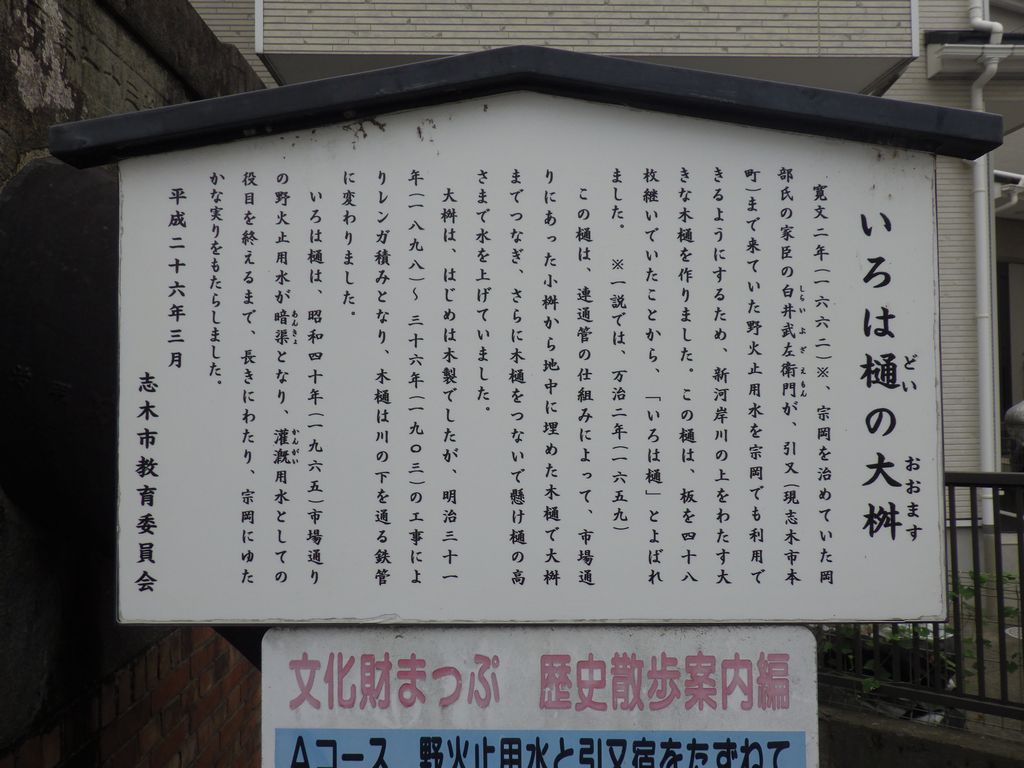 いろは樋の大桝
どい
おおます
寛文二年(一六六二)※、宗岡を治めていた岡
部氏の家臣の白井武左衛門が、引又(現志木市本
しらいよぶざえもん
町)まで来ていた野火止用水を宗岡でも利用で
きるようにするため、新河岸川の上をわたす大
きな木樋を作りました。この樋は、板を四十八
枚継いでいたことから、「いろは樋」とよばれ
ました。 ※一説では、万治二年(一六五九)
この樋は、連通管の仕組みによって、市場通
りにあった小桝から地中に埋めた木樋で大桝
までつなぎ、さらに木樋をつないで懸け樋の高
さまで水を上げていました。
大桝は、はじめは木製でしたが、明治三十一
年(一八九八)～三十六年(一九〇三)の工事によ
りレンガ積みとなり、木樋は川の下を通る鉄管
に変わりました。
いろは樋は、昭和四十年(一九六五)市場通り
の野火止用水が暗渠となり、灌漑用水としての
あんきょ
かんがい
役目を終えるまで、長きにわたり、宗岡にゆた
かな実りをもたらしました。
平成二十六年三月
志木市教育委員会
文化財まっぷ 歴史散歩案内編
Aコース 野火止用水と引又宿をたずねて